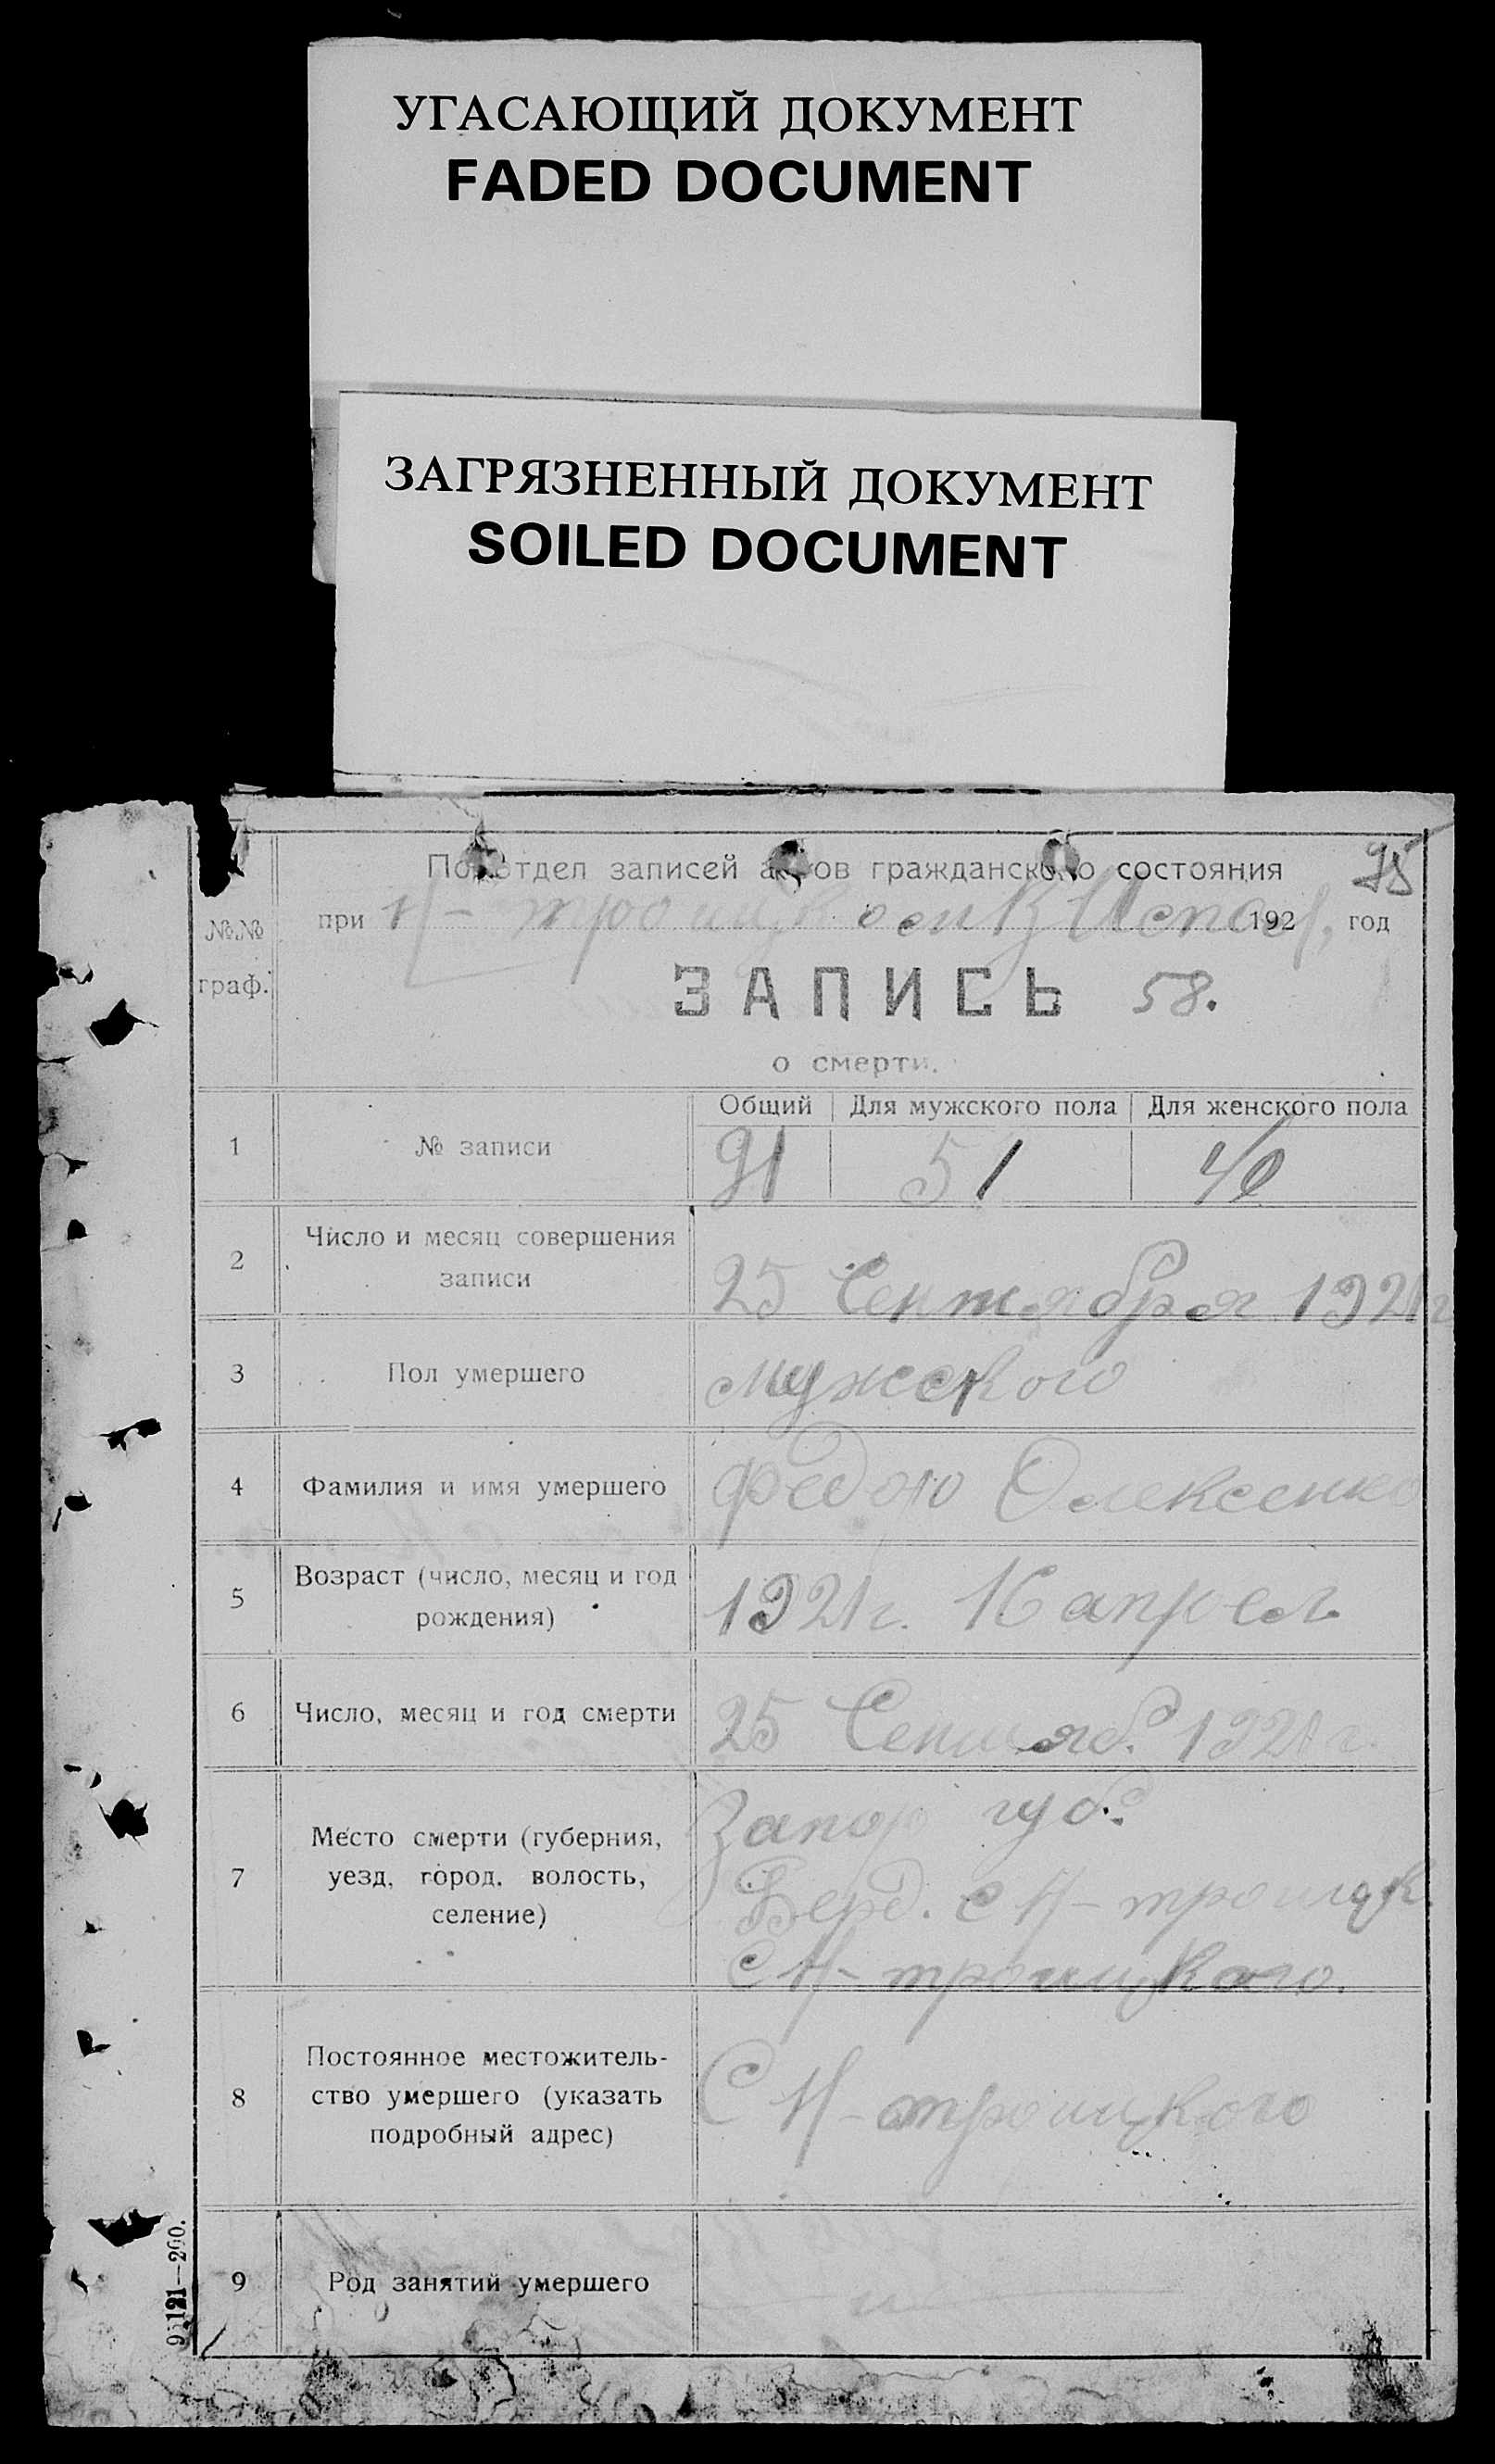 УГАСАЮЩИЙ ДОКУМЕНТ
FADED DOCUMENT
ЗАГРЯЗНЕННЫЙ ДОКУМЕНТ
SOILED DOCUMENT
Подотдел записей актов гражданского состояния
№№ граф.
при Н-троицком ВИспол, 192 год
ЗАПИСЬ 58.
о смерти.
Общий Для мужского пола Для женского пола
1 № записи 91 51 40
2 Число и месяц совершения
записи
25 Сентября 1921 г
3 Пол умершего мужского
4 Фамилия и имя умершего Федою Олексенко
5 Возраст (число, месяц и год
рождения)
1921 г. 16 апрел
6 Число, месяц и год смерти 25 Сентяб. 1921 г.
7 Место смерти (губерния,
уезд, город, волость,
селение)
Запор губ.
Берд. с Н-троицк.
С Н-троицкого.
8 Постоянное местожитель-
ство умершего (указать
подробный адрес)
С Н-троицкого
9 Род занятий умершего